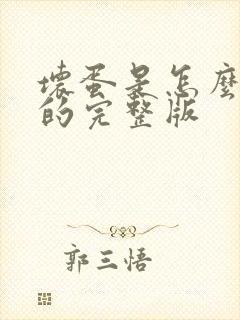 壞蛋是怎麼
的完整版
郭三悟